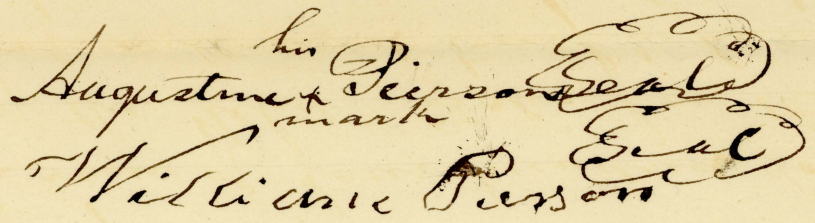 his
Augustine x Pierson Seal
mark
William Pierson Seal